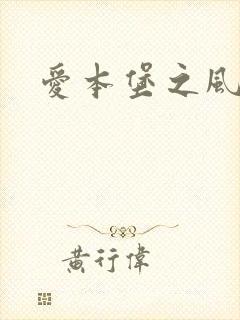 愛本堡之風
黃行偉